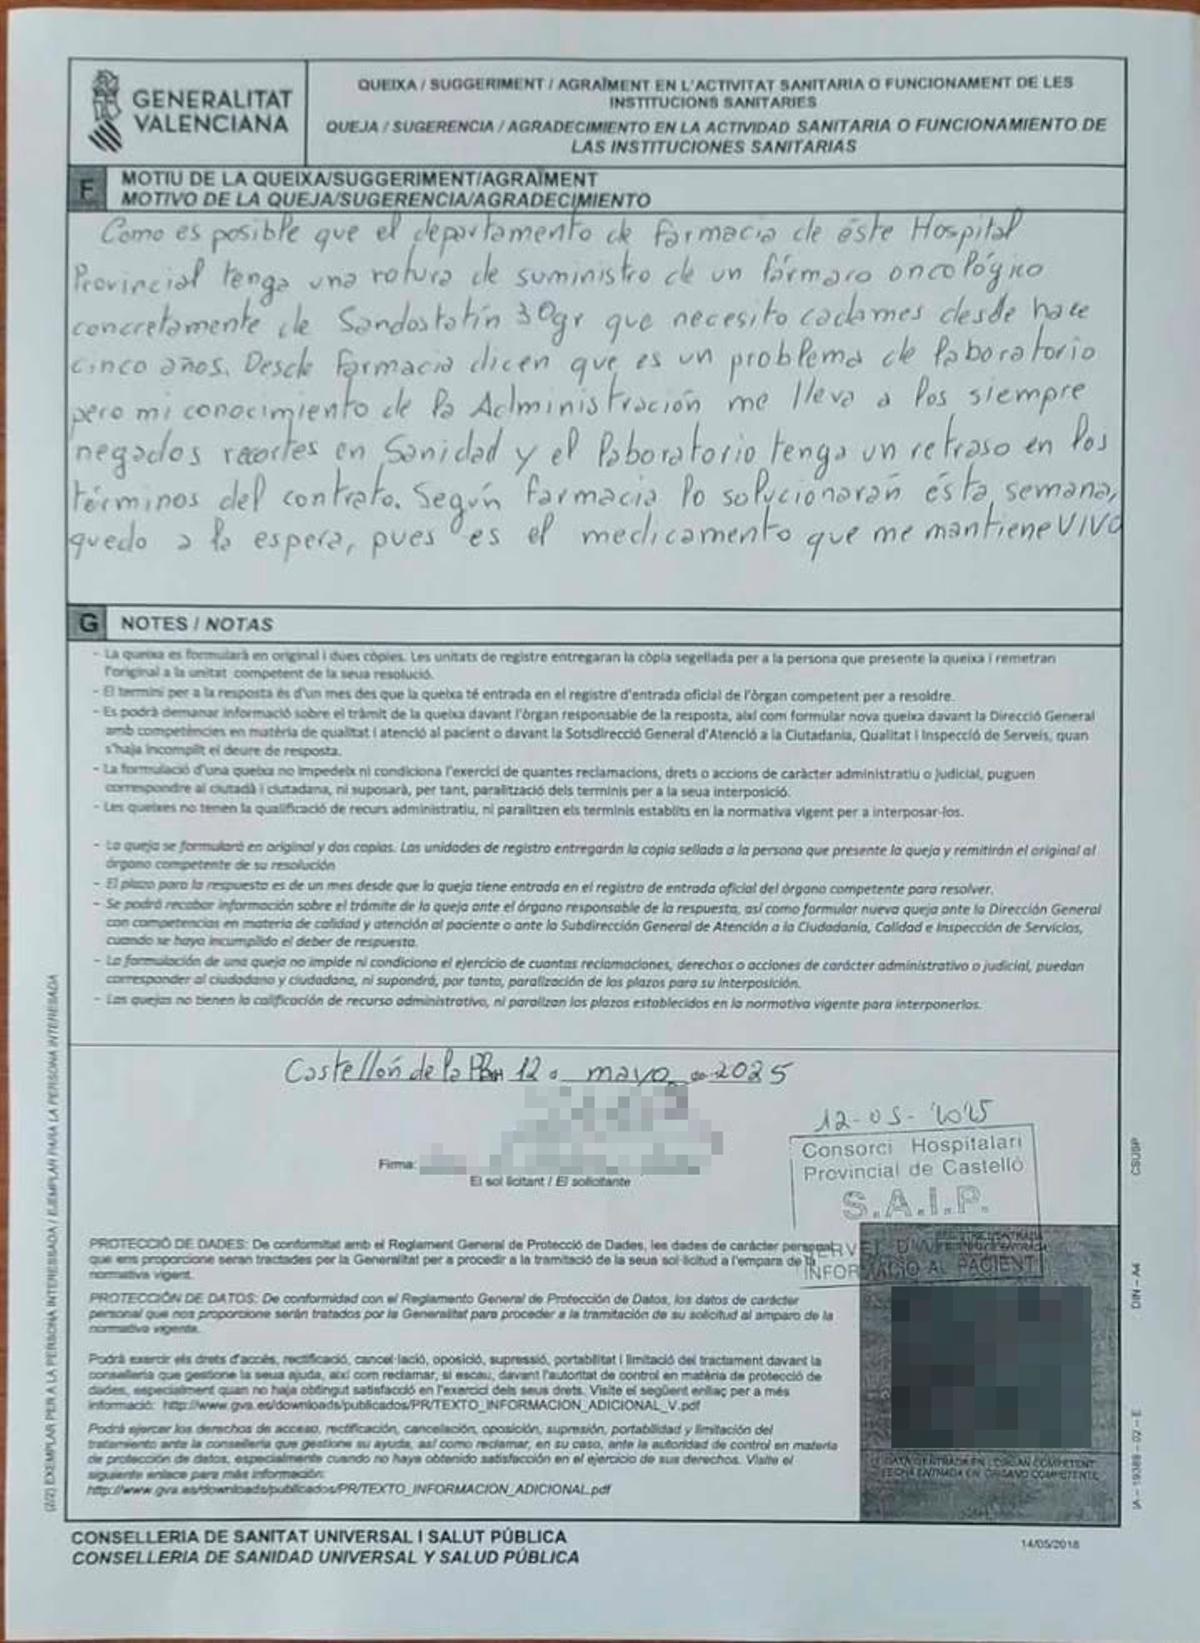 GENERALITAT
VALENCIANA
QUEIXA / SUGGERIMENT / AGRAÏMENT EN L'ACTIVITAT SANITARIA O FUNCIONAMENT DE LES
INSTITUCIONS SANITARIES
QUEJA / SUGERENCIA / AGRADECIMIENTO EN LA ACTIVIDAD SANITARIA O FUNCIONAMIENTO DE
LAS INSTITUCIONES SANITARIAS
F
MOTIU DE LA QUEIXA/SUGGERIMENT/AGRAÏMENT
MOTIVO DE LA QUEJA/SUGERENCIA/AGRADECIMIENTO
Como es posible que el departamento de farmacia de éste Hospital
Provincial tenga una rotura de suministro de un fármaco oncológico
concretamente de Sandostatín 30gr que necesito cada mes desde hace
cinco años. Desde farmacia dicen que es un problema de laboratorio
pero mi conocimiento de la Administración me lleva a los siempre
negados recortes en Sanidad y el laboratorio tenga un retraso en los
términos del contrato. Según farmacia lo solucionarán ésta semana,
quedo a la espera, pues es el medicamento que me mantiene VIVO
G NOTES / NOTAS
- La queixa es formularà en original i dues còpies. Les unitats de registre entregaran la còpia segellada per a la persona que presente la queixa i remetran
l'original a la unitat competent de la seua resolució.
- El termini per a la resposta és d'un mes des que la queixa té entrada en el registre d'entrada oficial de l'òrgan competent per a resoldre.
- Es podrà demanar informació sobre el tràmit de la queixa davant l'òrgan responsable de la resposta, així com formular nova queixa davant la Direcció General
amb competències en matèria de qualitat i atenció al pacient o davant la Sotsdirecció General d'Atenció a la Ciutadania, Qualitat i Inspecció de Serveis, quan
s'haja incomplit el deure de resposta.
- La formulació d'una queixa no impedeix ni condiciona l'exercici de quantes reclamacions, drets o accions de caràcter administratiu o judicial, puguen
correspondre al ciutadà i ciutadana, ni suposarà, per tant, paralització dels terminis per a la seua interposició.
- Les queixes no tenen la qualificació de recurs administratiu, ni paralitzen els terminis establits en la normativa vigent per a interposar-los.
- La queja se formulará en original y dos copias. Las unidades de registro entregarán la copia sellada a la persona que presente la queja y remitirán el original al
órgano competente de su resolución
- El plazo para la respuesta es de un mes desde que la queja tiene entrada en el registro de entrada oficial del órgano competente para resolver.
- Se podrá recabar información sobre el trámite de la queja ante el órgano responsable de la respuesta, así como formular nueva queja ante la Dirección General
con competencias en materia de calidad y atención al paciente o ante la Subdirección General de Atención a la Ciudadanía, Calidad e Inspección de Servicios,
cuando se haya incumplido el deber de respuesta.
- La formulación de una queja no impide ni condiciona el ejercicio de cuantas reclamaciones, derechos o acciones de carácter administrativo o judicial, puedan
corresponder al ciudadano y ciudadana, ni supondrá, por tanto, paralización de los plazos para su interposición.
- Las quejas no tienen la calificación de recurso administrativo, ni paralizan los plazos establecidos en la normativa vigente para interponerlos.
Castellón de la 12 mayo de 2025
Firma:
El sol·licitant / El solicitante
12-05-2025
Consorci Hospitalari
Provincial de Castelló
S.A.I.P.
SERVEI D'
INFORMACIÓ AL PACIENT
PROTECCIÓ DE DADES: De conformitat amb el Reglament General de Protecció de Dades, les dades de caràcter personal
que ens proporcione seran tractades per la Generalitat per a procedir a la tramitació de la seua sol·licitud a l'empara de la
normativa vigent.
PROTECCIÓN DE DATOS: De conformidad con el Reglamento General de Protección de Datos, los datos de carácter
personal que nos proporcione serán tratados por la Generalitat para proceder a la tramitación de su solicitud al amparo de la
normativa vigente.
Podrà exercir els drets d'accés, rectificació, cancel·lació, oposició, supressió, portabilitat i limitació del tractament davant la
conselleria que gestione la seua ajuda, així com reclamar, si escau, davant l'autoritat de control en matèria de protecció de
dades, especialment quan no haja obtingut satisfacció en l'exercici dels seus drets. Visite el següent enllaç per a més
informació: http://www.gva.es/downloads/publicados/PR/TEXTO_INFORMACION_ADICIONAL_V.pdf
Podrá ejercer los derechos de acceso, rectificación, cancelación, oposición, supresión, portabilidad y limitación del
tratamiento ante la conselleria que gestiona su ayuda, así como reclamar, en su caso, ante la autoridad de control en materia
de protección de datos, especialmente cuando no haya obtenido satisfacción en el ejercicio de sus derechos. Visite el
siguiente enlace para más información:
http://www.gva.es/downloads/publicados/PR/TEXTO_INFORMACION_ADICIONAL.pdf
DATA D'ENTRADA EN L'ÒRGAN COMPETENT
FECHA ENTRADA EN ÓRGANO COMPETENTE
(2/2) EXEMPLAR PER A LA PERSONA INTERESSADA / EJEMPLAR PARA LA PERSONA INTERESADA
CSUSP
DIN - A4
IA - 19389 - 02 - E
CONSELLERIA DE SANITAT UNIVERSAL I SALUT PÚBLICA
CONSELLERIA DE SANIDAD UNIVERSAL Y SALUD PÚBLICA
14/05/2018